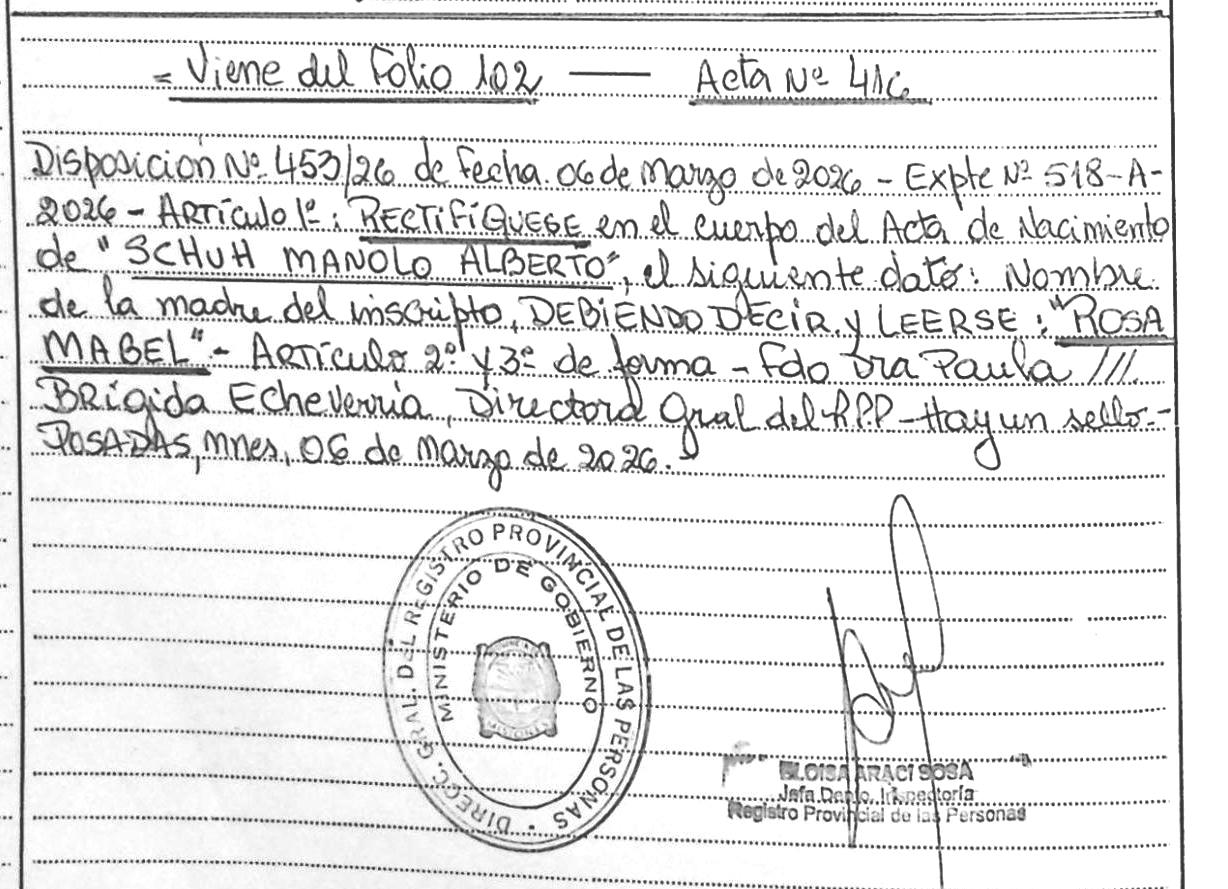 = Viene del Folio 102 — Acta Nº 416
Disposición Nº 453/26 de fecha 06 de Marzo de 2026 - Expte Nº 518-A-
2026 - Artículo 1º: RECTIFÍQUESE en el cuerpo del Acta de Nacimiento
de "SCHUH MANOLO ALBERTO", el siguiente dato: Nombre
de la madre del inscripto, DEBIENDO DECIR y LEERSE: "ROSA
MABEL" - Artículo 2º y 3º de forma - Fdo Dra Paula ///
Brígida Echeverria, Directora Gral del R.P.P - Hay un sello.-
POSADAS, Mnes, 06 de Marzo de 2026.
DIRECC. GRAL. DEL REGISTRO PROVINCIAL DE LAS PERSONAS
MINISTERIO DE GOBIERNO
MISIONES
ELOISA ARACI SOSA
Jefa Depto. Inspectoría
Registro Provincial de las Personas